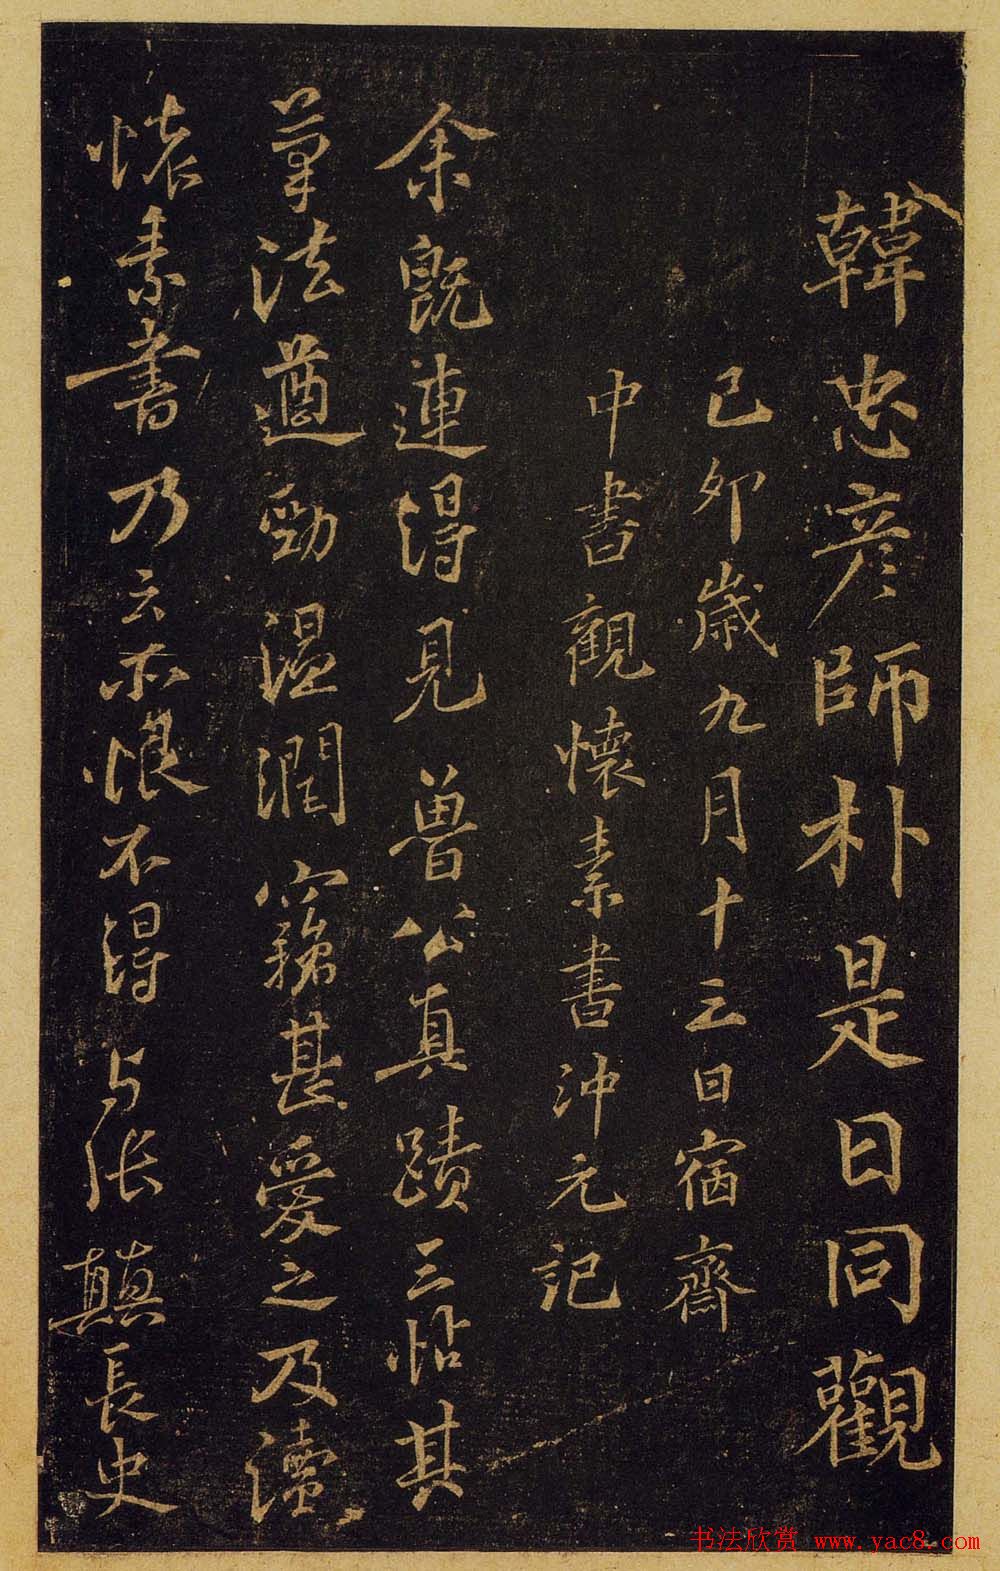 韓忠彦師朴是日同觀
己卯歲九月十三日宿齋
中書觀懷素書沖元記
余既連得見魯公真蹟三帖其
筆法遒勁温潤竊甚愛之及讀
懐素書乃云亦恨不得与張顛長史
书法欣赏 www.yac8.com